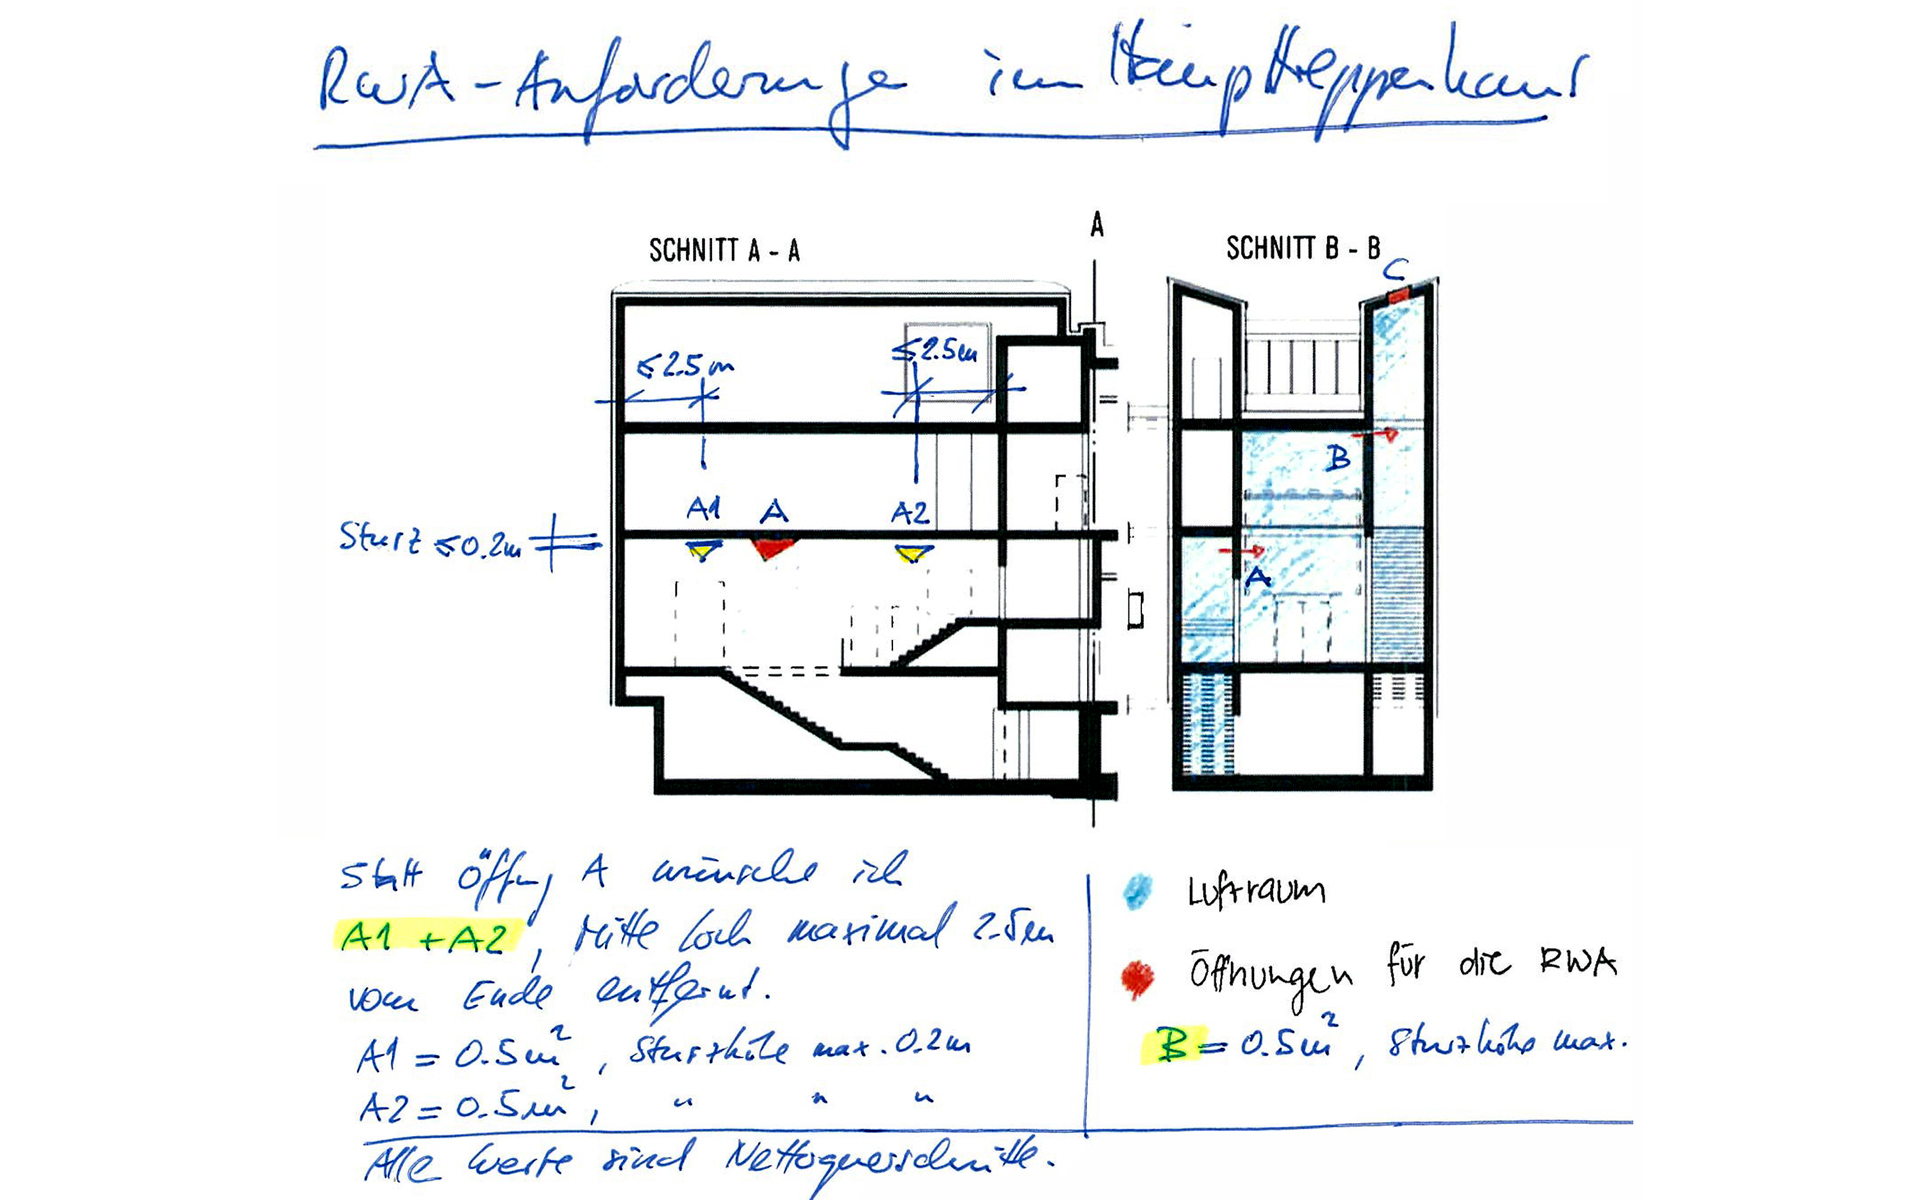 RWA-Anforderunge im Haupttreppenhaus
A
SCHNITT A - A
SCHNITT B - B
C
≤2.5m
≤2.5m
B
A1
A
A2
Sturz ≤0.2m
A
Statt Öffng A wünsche ich
A1 + A2, Mitte Loch maximal 2.5m
vom Ende entfernt.
A1 = 0.5m², Sturzhöhe max. 0.2m
A2 = 0.5m², " " "
Alle Werte sind Nettoquerschnitte.
Luftraum
Öffnungen für die RWA
B = 0.5m², Sturzhöhe max.